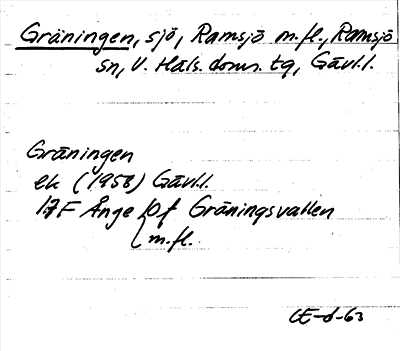 Gräningen, sjö, Ramsjö m.fl., Ramsjö
sn, V. Häls. doms. tg, Gävl.l.
Gräningen
ek (1958) Gävl.l.
17F Ånge Of Gräningsvallen
m.fl.
CE-d-63